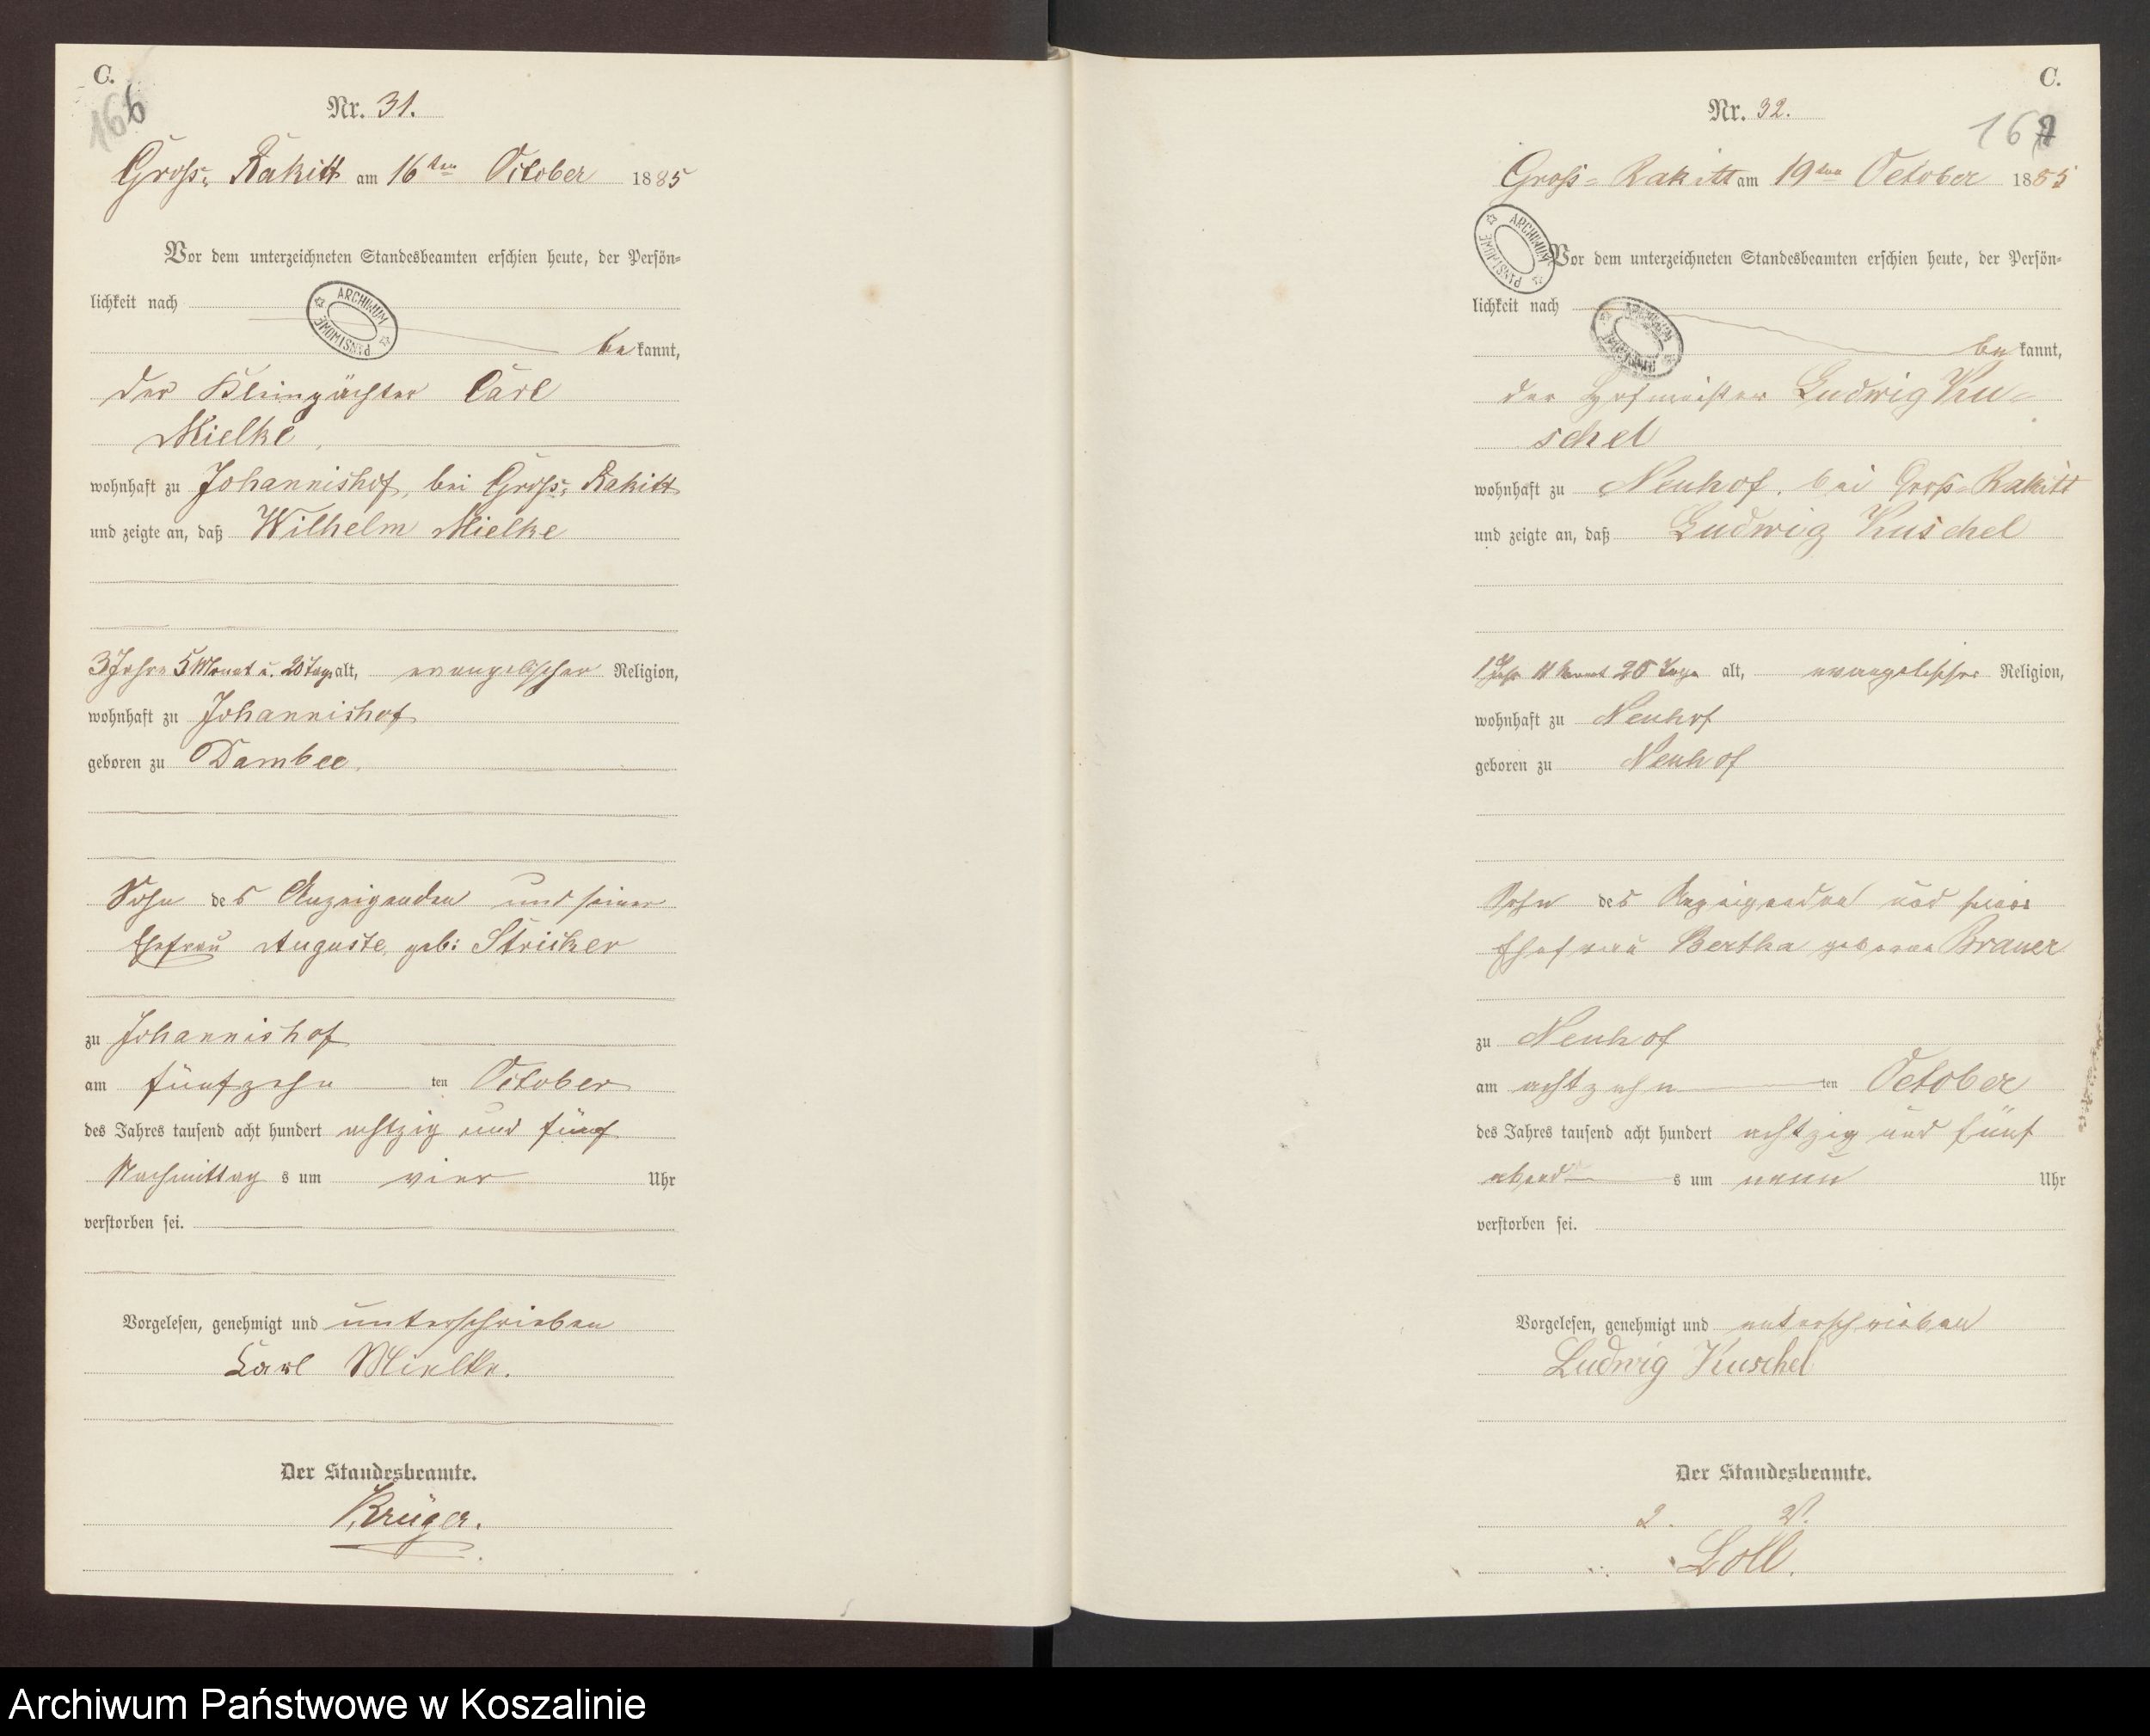 C.
166
Nr. 31.
Groß-Rakitt am 16ten October 1885
Vor dem unterzeichneten Standesbeamten erschien heute, der Persön-
lichkeit nach
ARCHIWUM PAŃSTWOWE
be kannt,
der Kleinpächter Carl
Mielke,
wohnhaft zu Johannishof, bei Groß-Rakitt
und zeigte an, daß Wilhelm Mielke
3 Jahre 5 Monat u. 20 Tage alt, evangelischer Religion,
wohnhaft zu Johannishof
geboren zu Dambee.
Sohn des Anzeigenden und seiner
Ehefrau Auguste, geb: Stricker
zu Johannishof
am fünfzehn ten October
des Jahres tausend acht hundert achtzig und fünf
Nachmittag s um vier Uhr
verstorben sei.
Vorgelesen, genehmigt und unterschrieben
Carl Mielke.
Der Standesbeamte.
Krüger.
C.
Nr. 32.
167
Groß-Rakitt am 19ten October 1885
ARCHIWUM PAŃSTWOWE
Vor dem unterzeichneten Standesbeamten erschien heute, der Persön-
lichkeit nach
ARCHIWUM PAŃSTWOWE
be kannt,
der Hofmeister Ludwig Ku-
schel
wohnhaft zu Neuhof, bei Groß-Rakitt
und zeigte an, daß Ludwig Kuschel
1 Jahr 11 Monat 20 Tage alt, evangelischer Religion,
wohnhaft zu Neuhof
geboren zu Neuhof
Sohn des Anzeigenden und seiner
Ehefrau Bertha geborene Brauer
zu Neuhof
am achtzehn ten October
des Jahres tausend acht hundert achtzig und fünf
abend s um neun Uhr
verstorben sei.
Vorgelesen, genehmigt und unterschrieben
Ludwig Kuschel
Der Standesbeamte.
Loll.
Archiwum Państwowe w Koszalinie